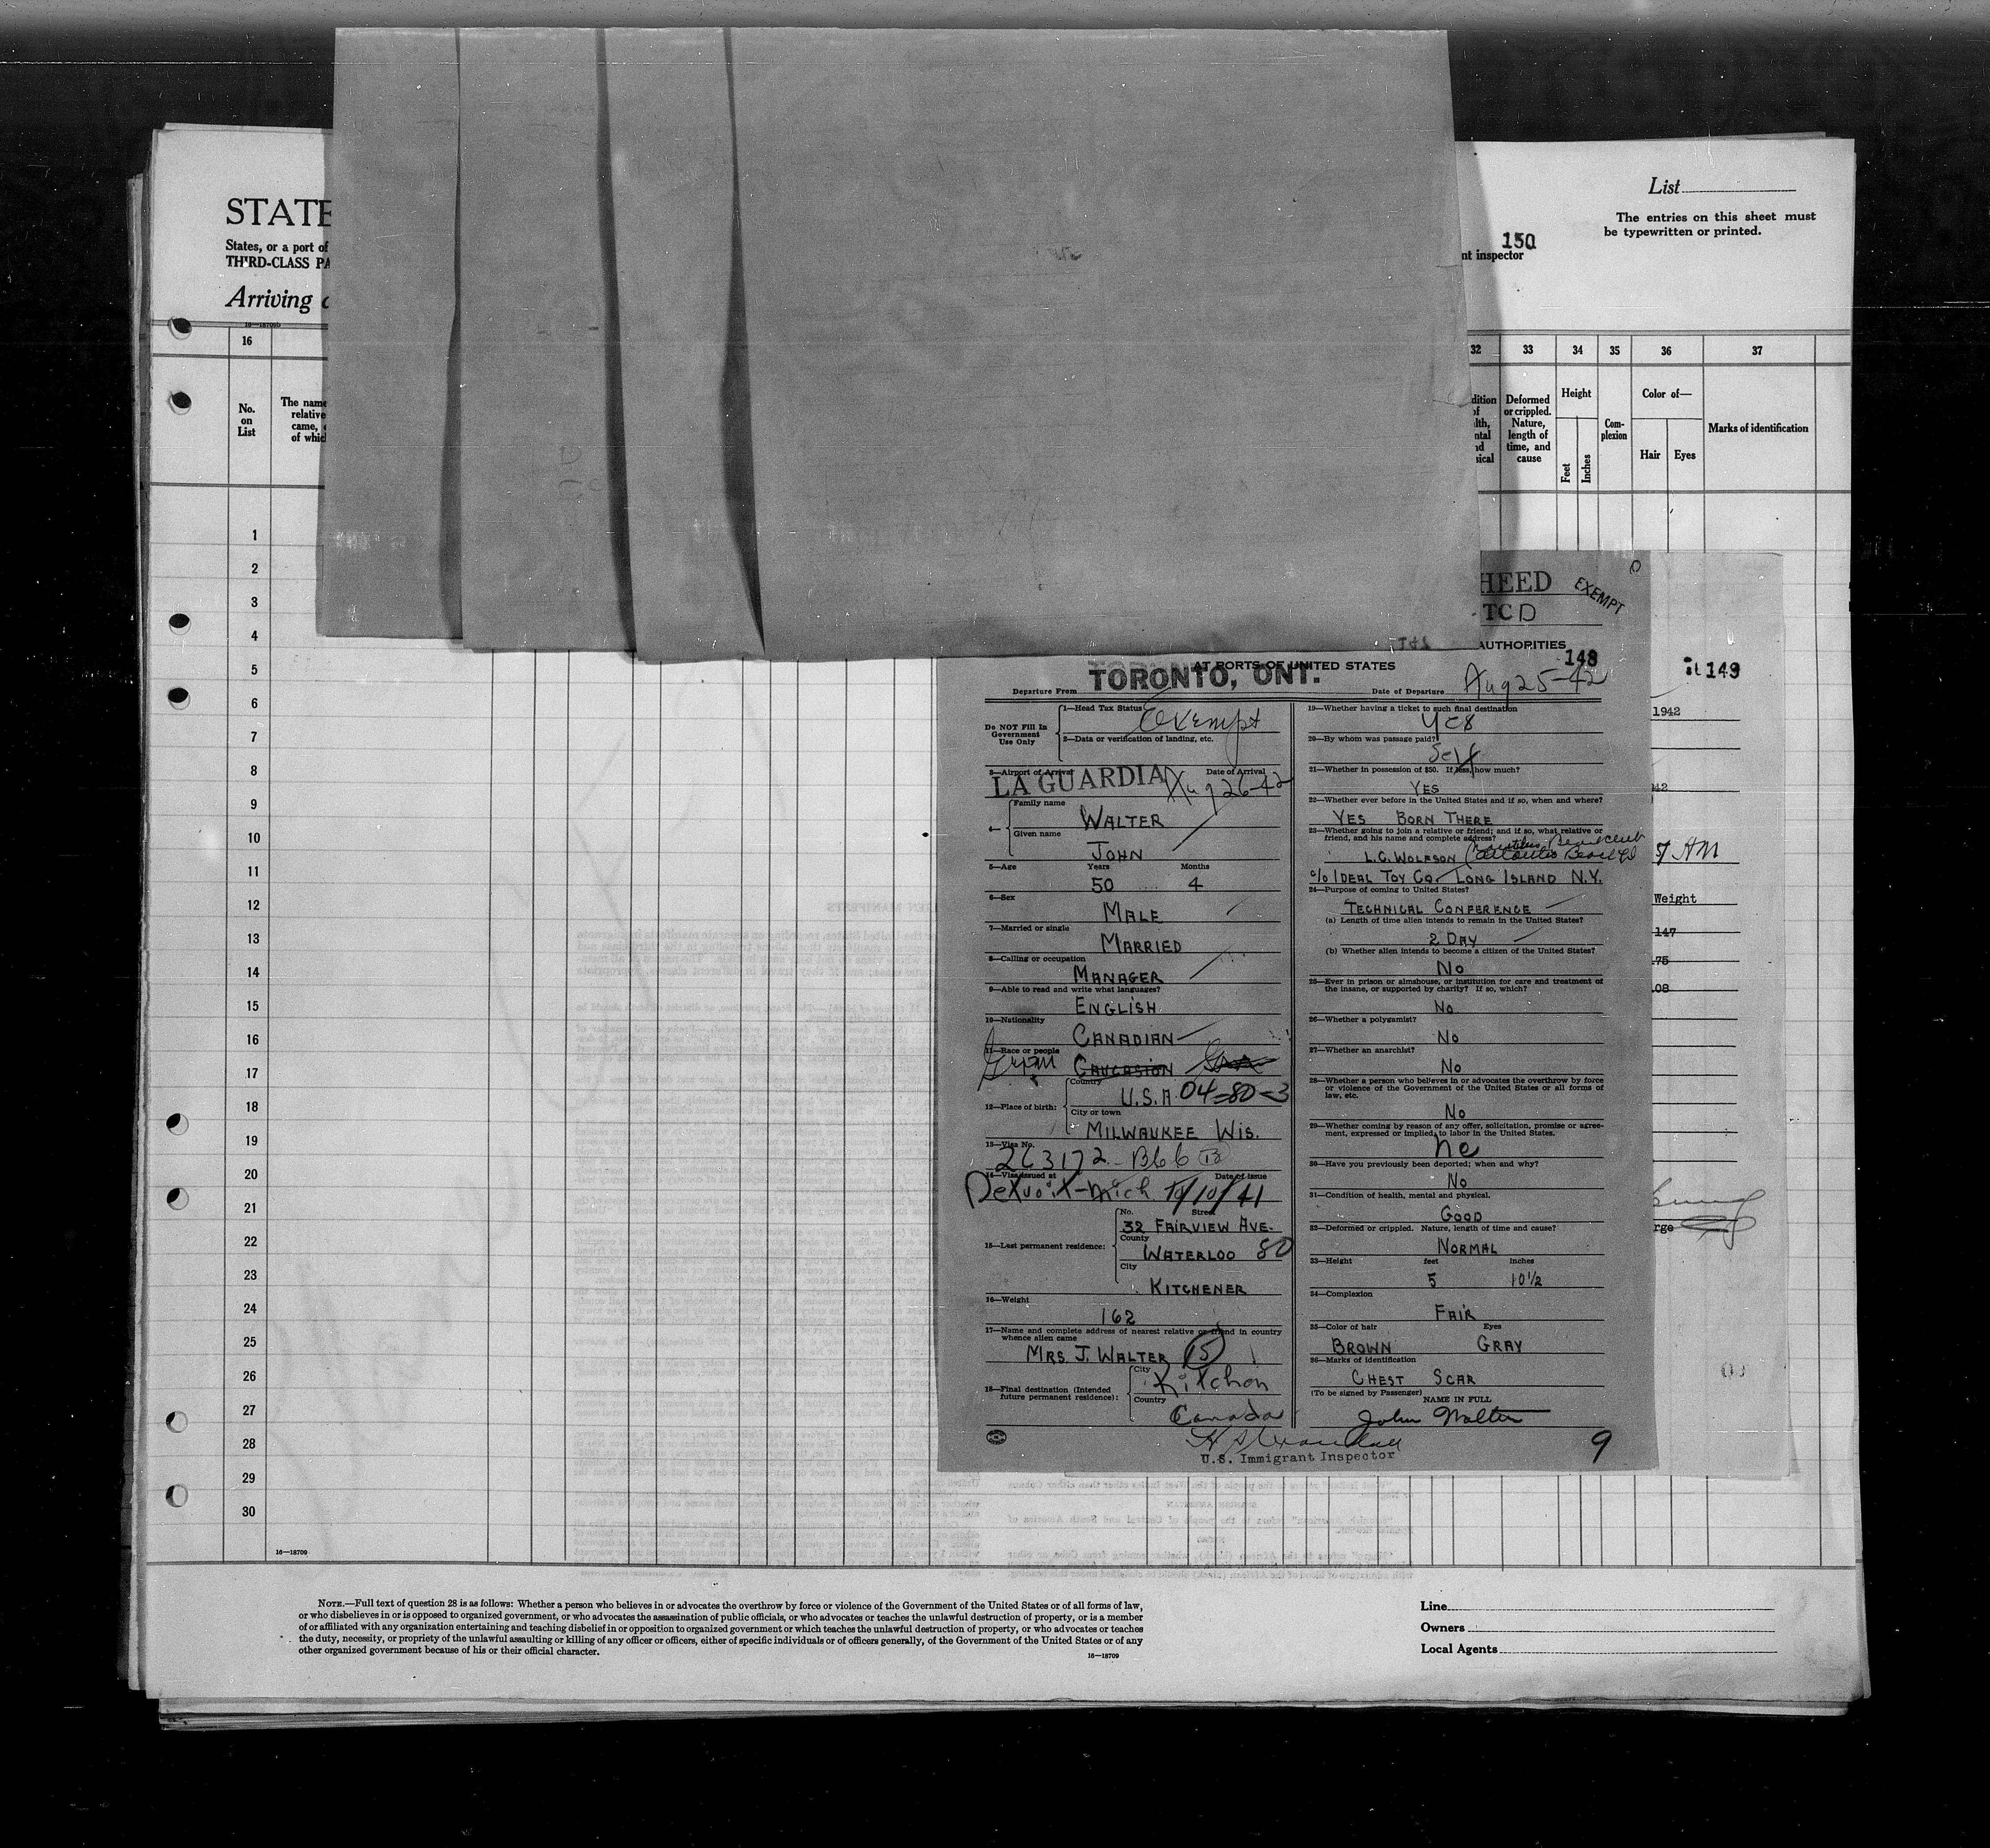 STATE
States, or a port of
TH'RD-CLASS PA
Arriving
List
The entries on this sheet must
be typewritten or printed.
150
nt inspector
16—18709b
16
32 33 34 35 36 37
No.
on
List
The name
relative
came,
of whic
dition
of
lth,
ntal
nd
sical
Deformed
or crippled.
Nature,
length of
time, and
cause
Height
Feet
Inches
Com-
plexion
Color of—
Hair Eyes
Marks of identification
1
2
3
4
5
6
7
8
9
10
11
12
13
14
15
16
17
18
19
20
21
22
23
24
25
26
27
28
29
30
16—18709
HEED
EXEMPT
TCD
AUTHORITIES
148
AT PORTS OF UNITED STATES
Departure From TORONTO, ONT.
Date of Departure Aug 25-42
Do NOT Fill In
Government
Use Only
1—Head Tax Status Exempt
2—Data or verification of landing, etc.
3—Airport of Arrival Date of Arrival
LA GUARDIA Aug 26-42
4—
Family name
WALTER
Given name
JOHN
5—Age Years Months
50 4
6—Sex
MALE
7—Married or single
MARRIED
8—Calling or occupation
MANAGER
9—Able to read and write what languages?
ENGLISH
10—Nationality
CANADIAN
11—Race or people
CAUCASION
12—Place of birth:
Country
U.S.A. 04-80-3
City or town
MILWAUKEE WIS.
13—Visa No.
263172
14—Visa issued at Date of issue
Detroit-Mich 10/10/41
15—Last permanent residence:
No. Street
32 FAIRVIEW AVE.
County
WATERLOO 80
City
KITCHENER
16—Weight
162
17—Name and complete address of nearest relative or friend in country
whence alien came
MRS. J. WALTER 15
18—Final destination (Intended
future permanent residence):
City
Kitchon
Country
Canada
19—Whether having a ticket to such final destination
Yes
20—By whom was passage paid?
Self
21—Whether in possession of $50. If less, how much?
YES
22—Whether ever before in the United States and if so, when and where?
YES BORN THERE
23—Whether going to join a relative or friend; and if so, what relative or
friend, and his name and complete address?
L.C. WOLFSON
C/O IDEAL TOY CO. LONG ISLAND N.Y.
24—Purpose of coming to United States?
TECHNICAL CONFERENCE
(a) Length of time alien intends to remain in the United States?
2 DAY
(b) Whether alien intends to become a citizen of the United States?
NO
25—Ever in prison or almshouse, or institution for care and treatment of
the insane, or supported by charity? If so, which?
NO
26—Whether a polygamist?
NO
27—Whether an anarchist?
NO
28—Whether a person who believes in or advocates the overthrow by force
or violence of the Government of the United States or all forms of
law, etc.
NO
29—Whether coming by reason of any offer, solicitation, promise or agree-
ment, expressed or implied, to labor in the United States.
No
30—Have you previously been deported; when and why?
NO
31—Condition of health, mental and physical.
GOOD
32—Deformed or crippled. Nature, length of time and cause?
NORMAL
33—Height feet inches
5 10 1/2
34—Complexion
FAIR
35—Color of hair Eyes
BROWN GRAY
36—Marks of identification
CHEST SCAR
(To be signed by Passenger)
NAME IN FULL
John Walter
U.S. Immigrant Inspector
9
149
1942
42
7 AM
Weight
147
75
08
rge
NOTE.—Full text of question 28 is as follows: Whether a person who believes in or advocates the overthrow by force or violence of the Government of the United States or of all forms of law,
or who disbelieves in or is opposed to organized government, or who advocates the assassination of public officials, or who advocates or teaches the unlawful destruction of property, or is a member
of or affiliated with any organization entertaining and teaching disbelief in or opposition to organized government or which teaches the unlawful destruction of property, or who advocates or teaches
the duty, necessity, or propriety of the unlawful assaulting or killing of any officer or officers, either of specific individuals or of officers generally, of the Government of the United States or of any
other organized government because of his or their official character.
16—18709
Line
Owners
Local Agents